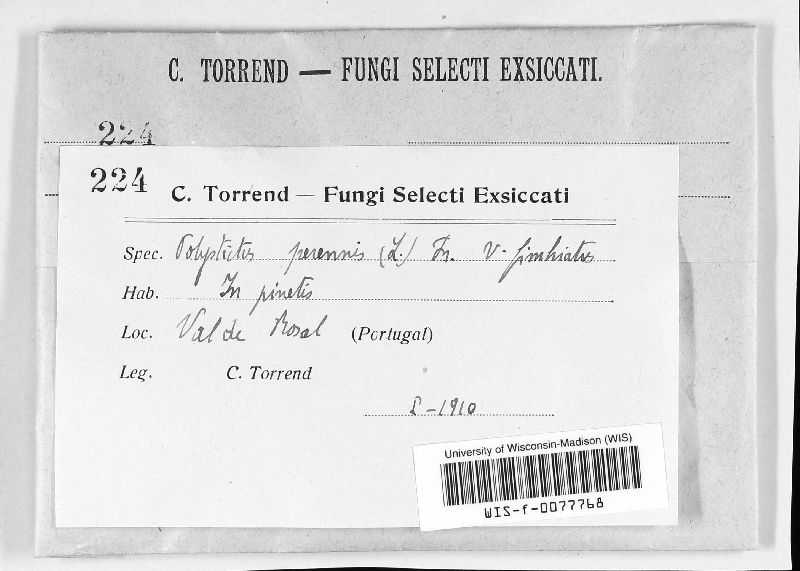 C. TORREND — FUNGI SELECTI EXSICCATI.
224
224 C. Torrend — Fungi Selecti Exsiccati
Spec. Polystictus perennis (L.) Fr. V. fimbriatus
Hab. In pinetis
Loc. Val de Rosal (Portugal)
Leg. C. Torrend
-1910
University of Wisconsin-Madison (WIS)
WIS-f-0077768